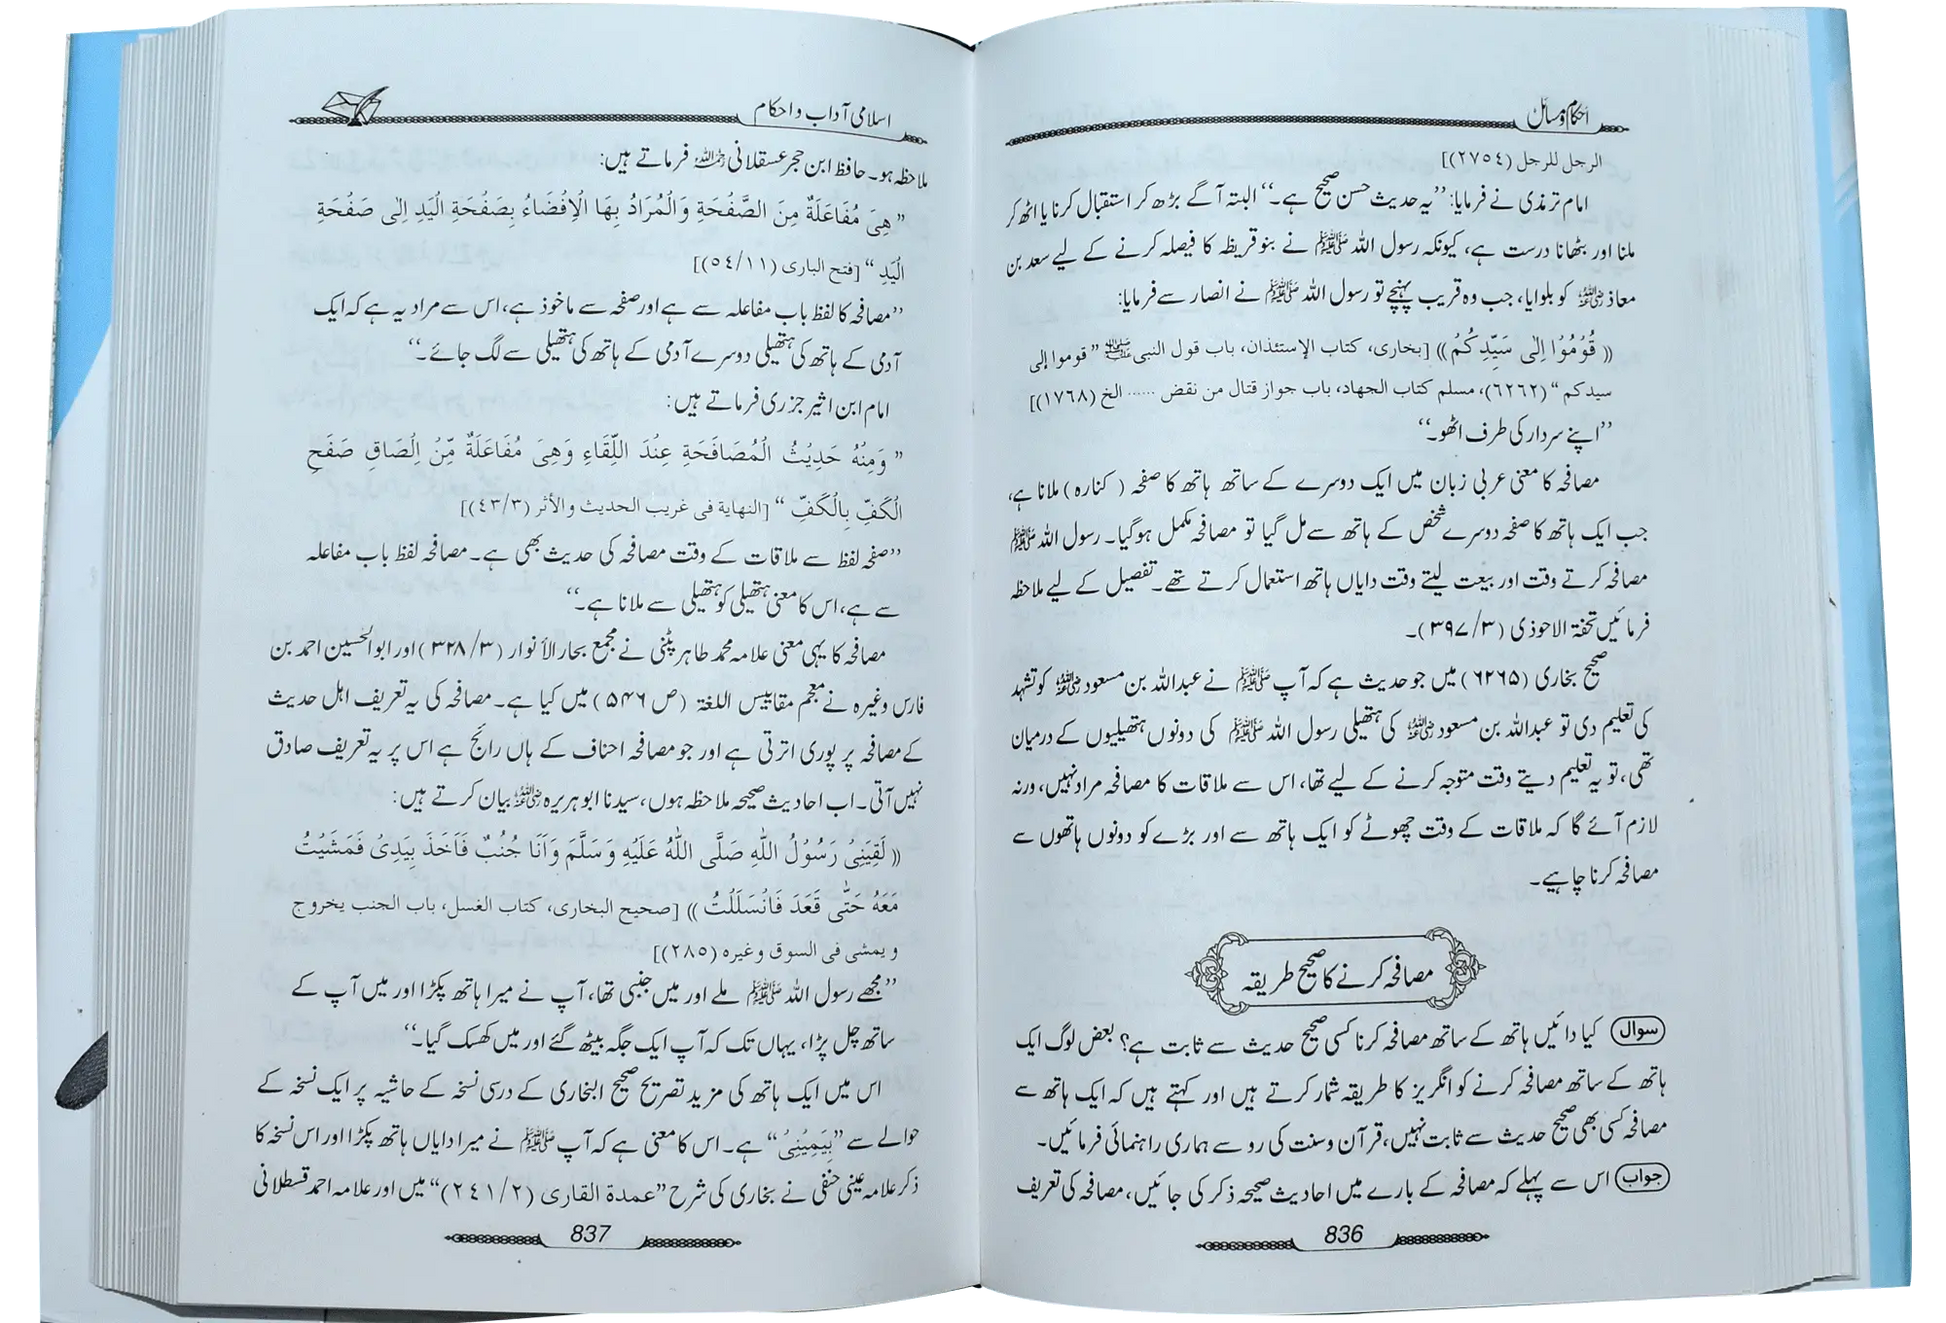 احکام و مسائل
الرجل للرجل (٢٧٥٤)]
امام ترمذی نے فرمایا: ’’یہ حدیث حسن صحیح ہے۔‘‘ البتہ آگے بڑھ کر استقبال کرنا یا اٹھ کر
ملنا اور بٹھانا درست ہے، کیونکہ رسول اللہ ﷺ نے بنو قریظہ کا فیصلہ کرنے کے لیے سعد بن
معاذ رضی اللہ عنہ کو بلوایا، جب وہ قریب پہنچے تو رسول اللہ ﷺ نے انصار سے فرمایا:
(( قُوْمُوْا اِلٰی سَیِّدِکُمْ )) [بخاری، کتاب الإستئذان، باب قول النبی ﷺ ” قوموا إلی
سیدکم “ (٦٢٦٢)، مسلم کتاب الجهاد، باب جواز قتال من نقض ...... الخ (١٧٦٨)]
’’اپنے سردار کی طرف اٹھو۔‘‘
مصافحہ کا معنی عربی زبان میں ایک دوسرے کے ساتھ ہاتھ کا صفحہ ( کنارہ ) ملانا ہے،
جب ایک ہاتھ کا صفحہ دوسرے شخص کے ہاتھ سے مل گیا تو مصافحہ مکمل ہو گیا۔ رسول اللہ ﷺ
مصافحہ کرتے وقت اور بیعت لیتے وقت دایاں ہاتھ استعمال کرتے تھے۔ تفصیل کے لیے ملاحظہ
فرمائیں تحفۃ الاحوذی (۳/ ۳۹۷)۔
صحیح بخاری (۶۲۶۵) میں جو حدیث ہے کہ آپ ﷺ نے عبداللہ بن مسعود رضی اللہ عنہ کو تشہد
کی تعلیم دی تو عبداللہ بن مسعود رضی اللہ عنہ کی ہتھیلی رسول اللہ ﷺ کی دونوں ہتھیلیوں کے درمیان
تھی، تو یہ تعلیم دیتے وقت متوجہ کرنے کے لیے تھا، اس سے ملاقات کا مصافحہ مراد نہیں، ورنہ
لازم آئے گا کہ ملاقات کے وقت چھوٹے کو ایک ہاتھ سے اور بڑے کو دونوں ہاتھوں سے
مصافحہ کرنا چاہیے۔
مصافحہ کرنے کا صحیح طریقہ
سوال کیا دائیں ہاتھ کے ساتھ مصافحہ کرنا کسی صحیح حدیث سے ثابت ہے؟ بعض لوگ ایک
ہاتھ کے ساتھ مصافحہ کرنے کو انگریز کا طریقہ شمار کرتے ہیں اور کہتے ہیں کہ ایک ہاتھ سے
مصافحہ کسی بھی صحیح حدیث سے ثابت نہیں، قرآن وسنت کی رو سے ہماری راہنمائی فرمائیں۔
جواب اس سے پہلے کہ مصافحہ کے بارے میں احادیث صحیحہ ذکر کی جائیں، مصافحہ کی تعریف
836
اسلامی آداب و احکام
ملاحظہ ہو۔ حافظ ابن حجر عسقلانی رحمہ اللہ فرماتے ہیں:
” هِیَ مُفَاعَلَةٌ مِنَ الصَّفْحَةِ وَالْمُرَادُ بِهَا الْاِفْضَاءُ بِصَفْحَةِ الْیَدِ اِلٰی صَفْحَةِ
الْیَدِ “ [فتح الباری (١١/ ٥٤)]
’’مصافحہ کا لفظ باب مفاعلہ سے ہے اور صفحہ سے ماخوذ ہے، اس سے مراد یہ ہے کہ ایک
آدمی کے ہاتھ کی ہتھیلی دوسرے آدمی کے ہاتھ کی ہتھیلی سے لگ جائے۔‘‘
امام ابن اثیر جزری فرماتے ہیں:
” وَمِنْهُ حَدِیْثُ الْمُصَافَحَةِ عِنْدَ اللِّقَاءِ وَهِیَ مُفَاعَلَةٌ مِّنْ اِلْصَاقِ صَفْحِ
الْکَفِّ بِالْکَفِّ “ [النهایة فی غریب الحدیث والأثر (٣/ ٤٣)]
’’صفحہ لفظ سے ملاقات کے وقت مصافحہ کی حدیث بھی ہے۔ مصافحہ لفظ باب مفاعلہ
سے ہے، اس کا معنی ہتھیلی کو ہتھیلی سے ملانا ہے۔‘‘
مصافحہ کا یہی معنی علامہ محمد طاہر پٹنی نے مجمع بحار الأنوار (۳/ ۳۲۸) اور ابوالحسین احمد بن
فارس وغیرہ نے معجم مقاییس اللغۃ (ص ۵۴۶) میں کیا ہے۔ مصافحہ کی یہ تعریف اہل حدیث
کے مصافحہ پر پوری اترتی ہے اور جو مصافحہ احناف کے ہاں رائج ہے اس پر یہ تعریف صادق
نہیں آتی۔ اب احادیث صحیحہ ملاحظہ ہوں، سیدنا ابو ہریرہ رضی اللہ عنہ بیان کرتے ہیں:
(( لَقِیَنِیْ رَسُوْلُ اللّٰهِ صَلَّی اللّٰهُ عَلَیْهِ وَسَلَّمَ وَاَنَا جُنُبٌ فَاَخَذَ بِیَدِیْ فَمَشَیْتُ
مَعَهُ حَتّٰی قَعَدَ فَانْسَلَلْتُ )) [صحیح البخاری، کتاب الغسل، باب الجنب یخروج
و یمشی فی السوق وغیره (٢٨٥)]
’’مجھے رسول اللہ ﷺ ملے اور میں جنبی تھا، آپ نے میرا ہاتھ پکڑا اور میں آپ کے
ساتھ چل پڑا، یہاں تک کہ آپ ایک جگہ بیٹھ گئے اور میں کھسک گیا۔‘‘
اس میں ایک ہاتھ کی مزید تصریح صحیح البخاری کے درسی نسخہ کے حاشیہ پر ایک نسخہ کے
حوالے سے ”بِیَمِیْنِیْ“ ہے۔ اس کا معنی ہے کہ آپ ﷺ نے میرا دایاں ہاتھ پکڑا اور اس نسخہ کا
ذکر علامہ عینی حنفی نے بخاری کی شرح ”عمدة القاری (٢/ ٢٤١)“ میں اور علامہ احمد قسطلانی
837